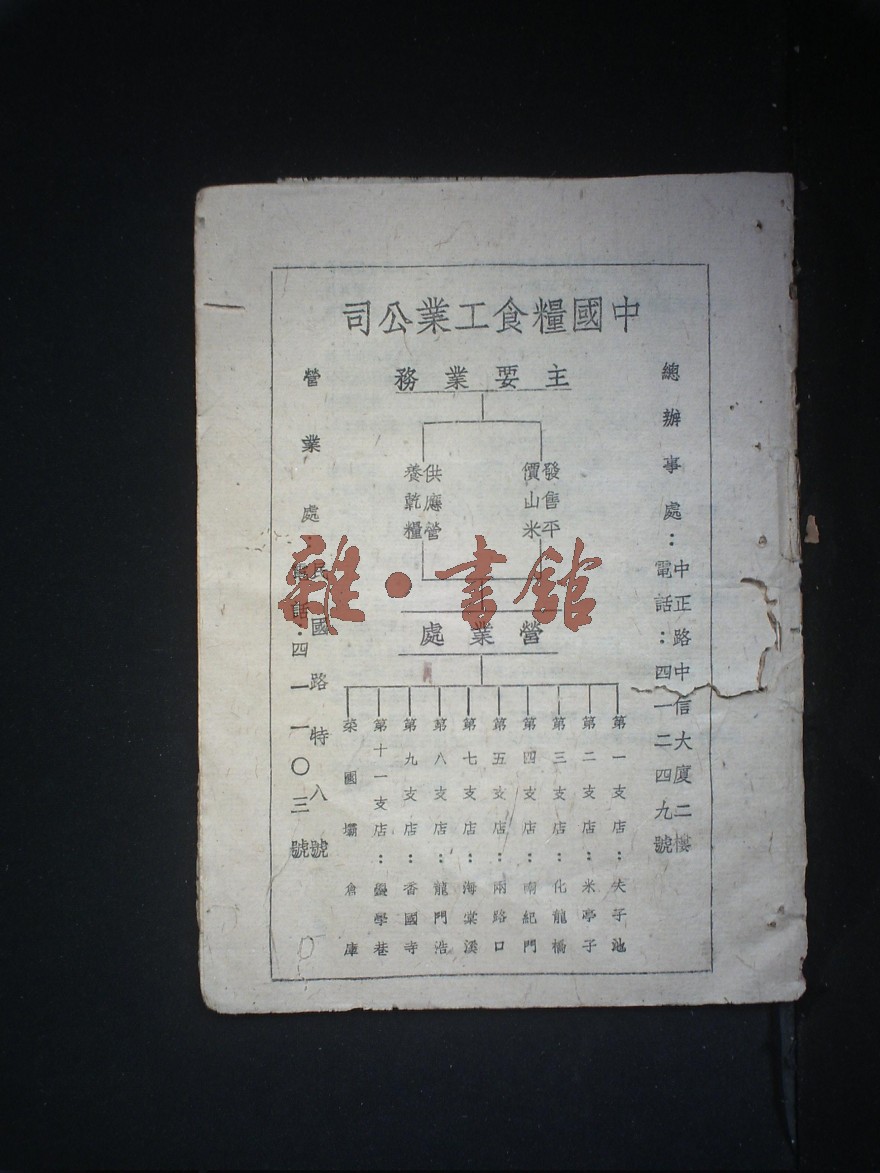 中國糧食工業公司
總辦事處：中正路中信大廈二樓
電話：四一二四九號
主要業務
發售平價山米
供應營養乾糧
營業處
第一支店：夫子池
第二支店：米亭子
第三支店：化龍橋
第四支店：南紀門
第五支店：兩路口
第七支店：海棠溪
第八支店：龍門浩
第九支店：香國寺
第十一支店：學巷
菜園壩倉庫
營業處：民國路特八號
電話：四一一〇三號
雜·書館